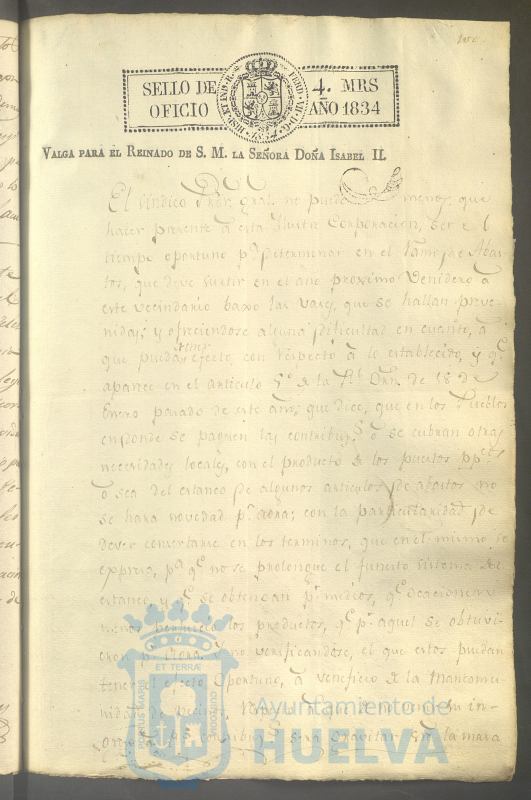 SELLO DE OFICIO
4. MRS AÑO 1834
VALGA PARA EL REINADO DE S. M. LA SEÑORA DOÑA ISABEL II.
El Sindico Pror. gral. no puede menos que
hacer presente a esta Ilustre Corporacion, ser el
tiempo oportuno pa. determinar en el Ramo de Abas-
tos, que deve surtir en el año proximo Venidero a
este vecindario baxo las vases, que se hallan preve-
nidas; y ofreciendose alguna dificultad en cuanto, a
que pueda tener efecto, con respecto a lo establecido, y qe.
aparece en el articulo de la Rl. Orn. de 18 de
Enero pasado de este año, que dice, que en los Pueblos
en donde se paguen las contribus. o se cubran otras
necesidades locales, con el producto de los puestos ppcos
o sea del estanco de algunos articulos de abastos no
se hara novedad pr. aora; con la particularidad de
dever concertarse en los terminos, que en el mismo se
expresa, pa. qe. no se prolongue el funesto sistema de
estanco, y qe. se obtengan pr. medios, qe. ocacionen
menos perjuicio los productos, qe. pr. aquel se obtuvi-
eron pr. aora, y no verificandose, el que estos puedan
tener el efecto oportuno, a veneficio de la Mancomu-
nidad de Vecinos, su in-
greso gravitar en la masa
ET TERRÆ
PORTUS MARIS
CUSTODIA
Ayuntamiento de
HUELVA